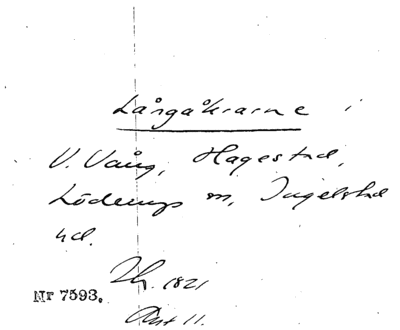 Långåkrarne i
V. Vång, Hagestad,
Löderups sn, Ingelstad
hd.
Nr 7593.
1821
Akt 11.